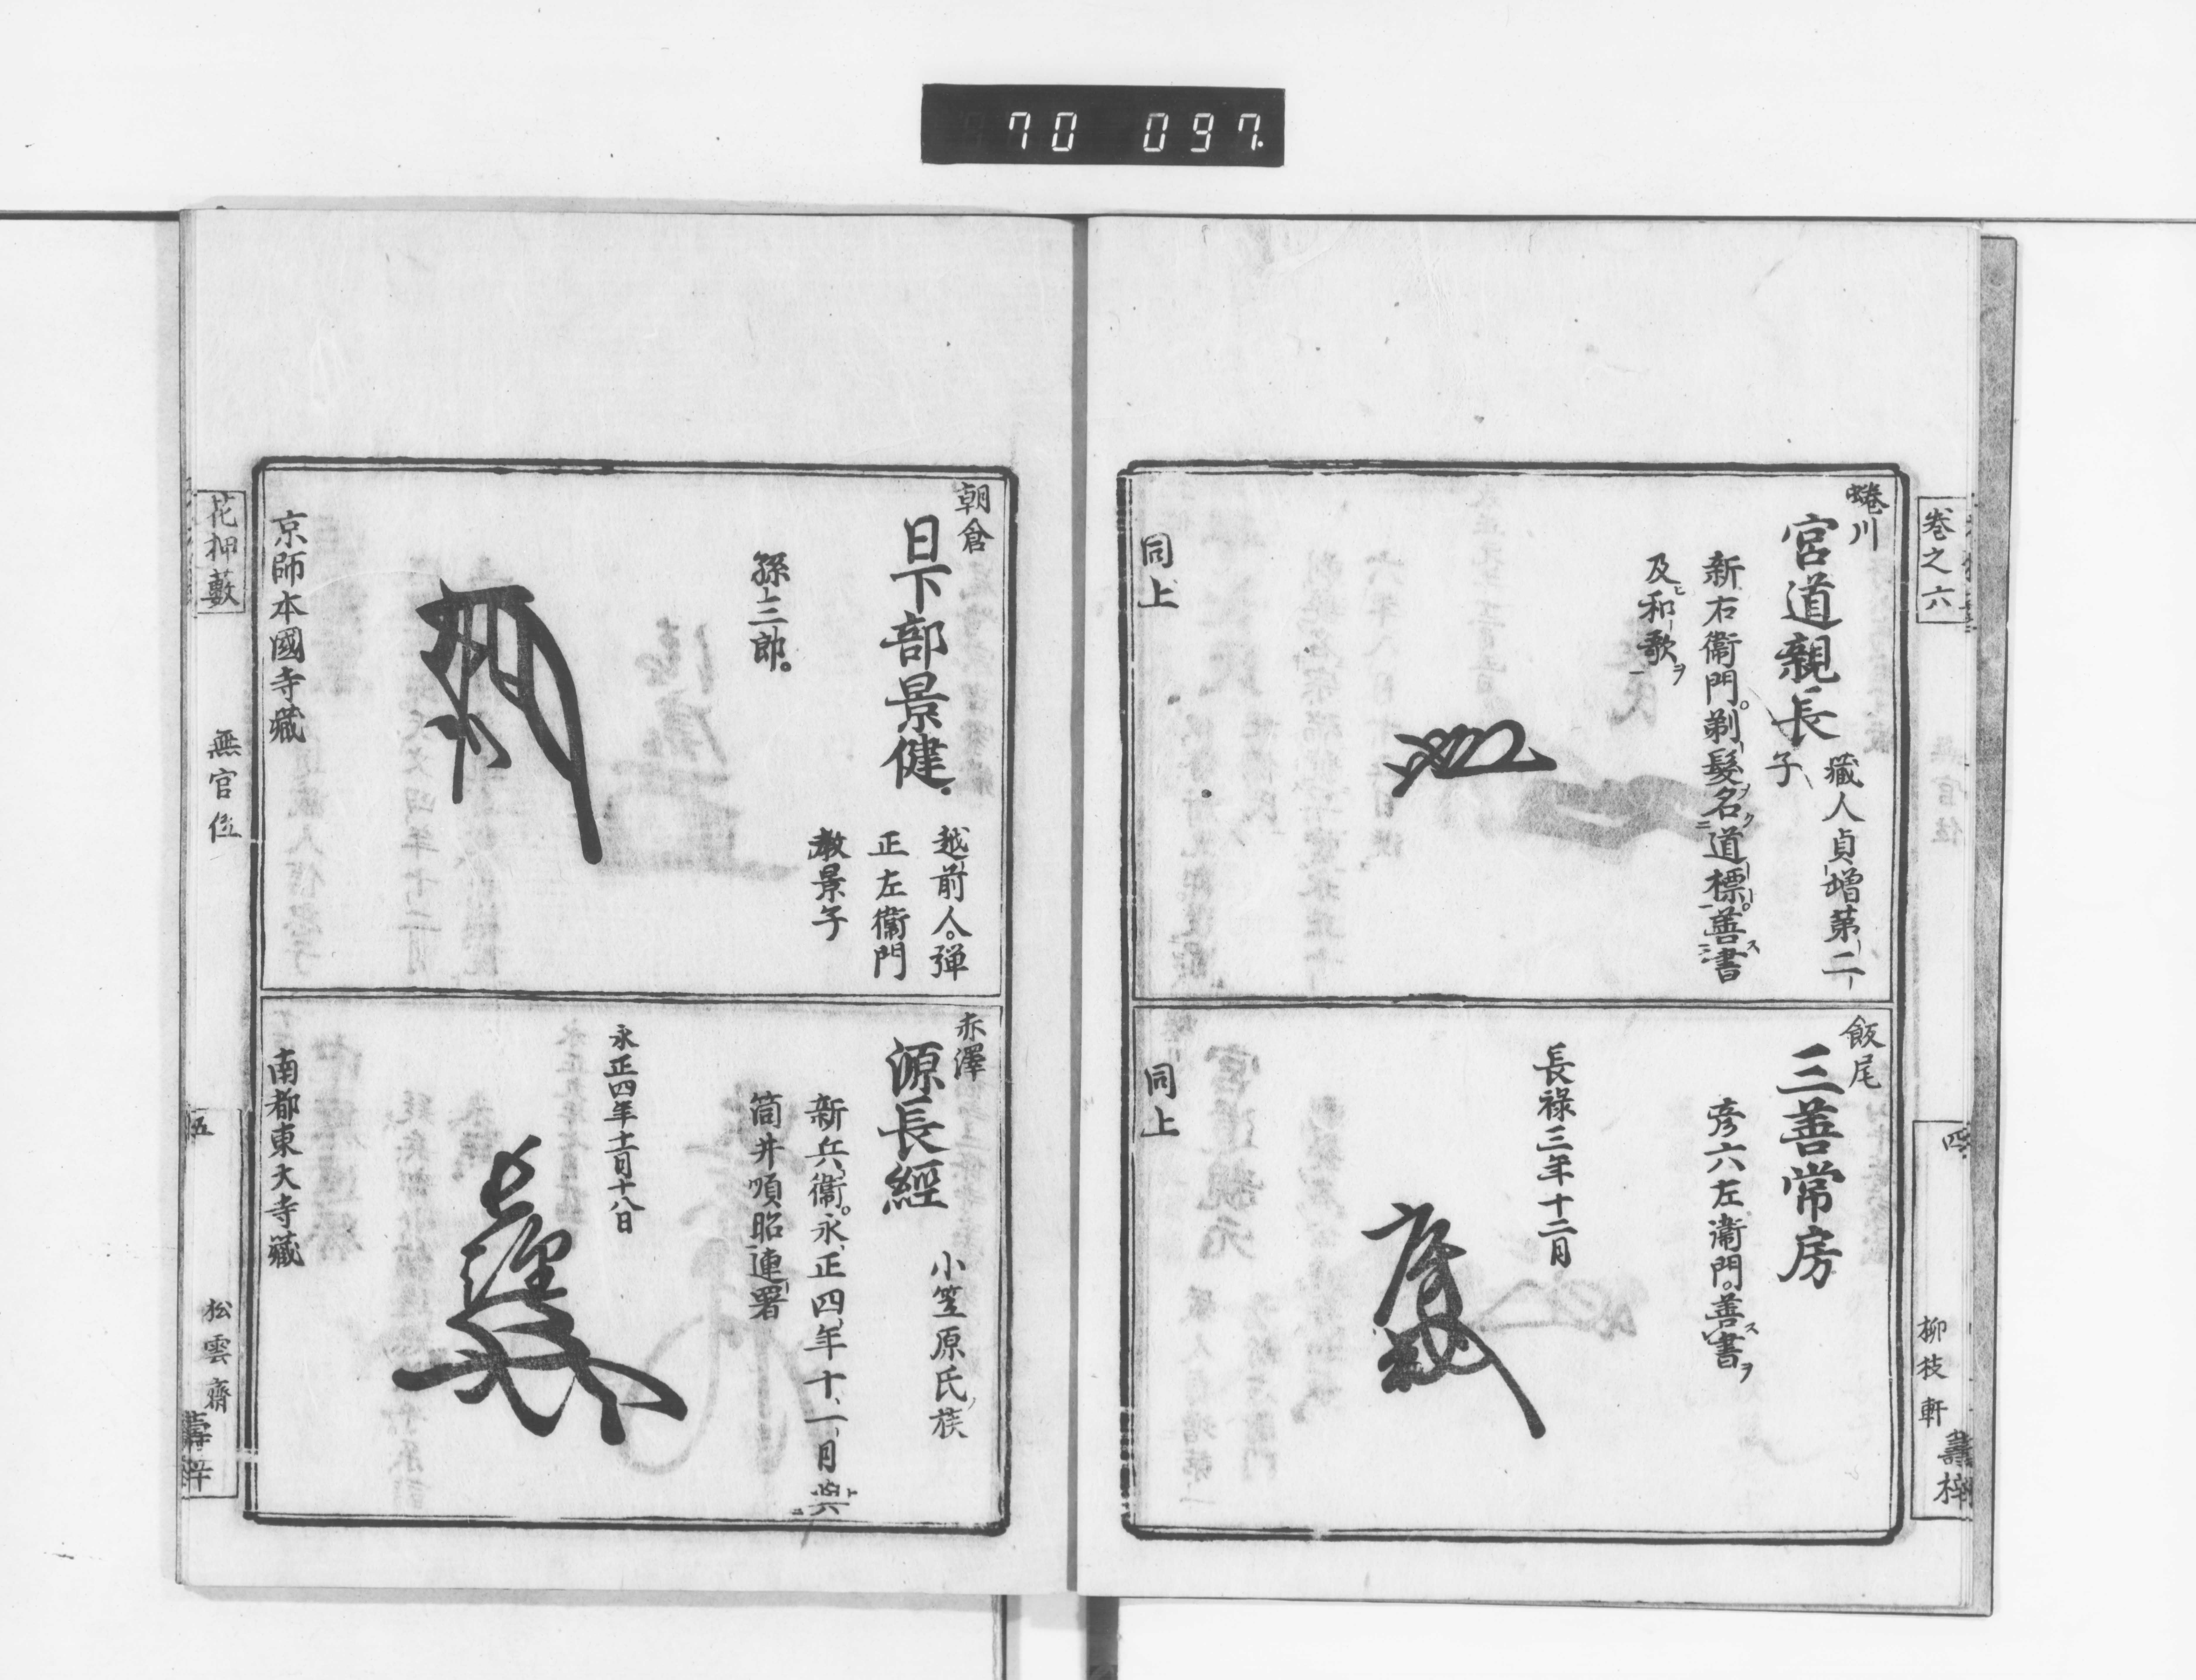 70 097.
巻之六
四
柳枝軒
蜷川
宮道親長
藏人貞増第二
子
新右衞門。剃髮名道標。善書
及和歌
同上
飯尾
三善常房
彦六左衞門。善書
長祿三年十二月
同上
朝倉
日下部景健
越前人。弾
正左衞門
教景子
孫三郎。
京師本國寺藏
赤澤
源長經
小笠原氏族
新兵衞。永正四年十一月與
筒井順昭連署
永正四年十一月十八日
南都東大寺藏
花押藪
無官位
五
松雲齋